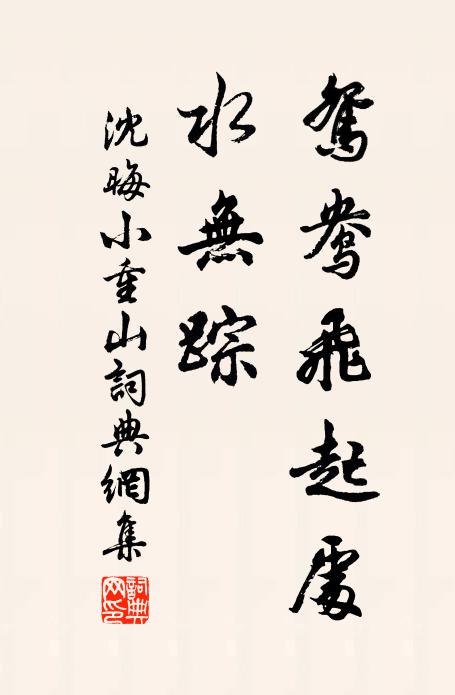 鴛鴦飛起處
水無踪
沈晦小重山詞典網集
詞典网印